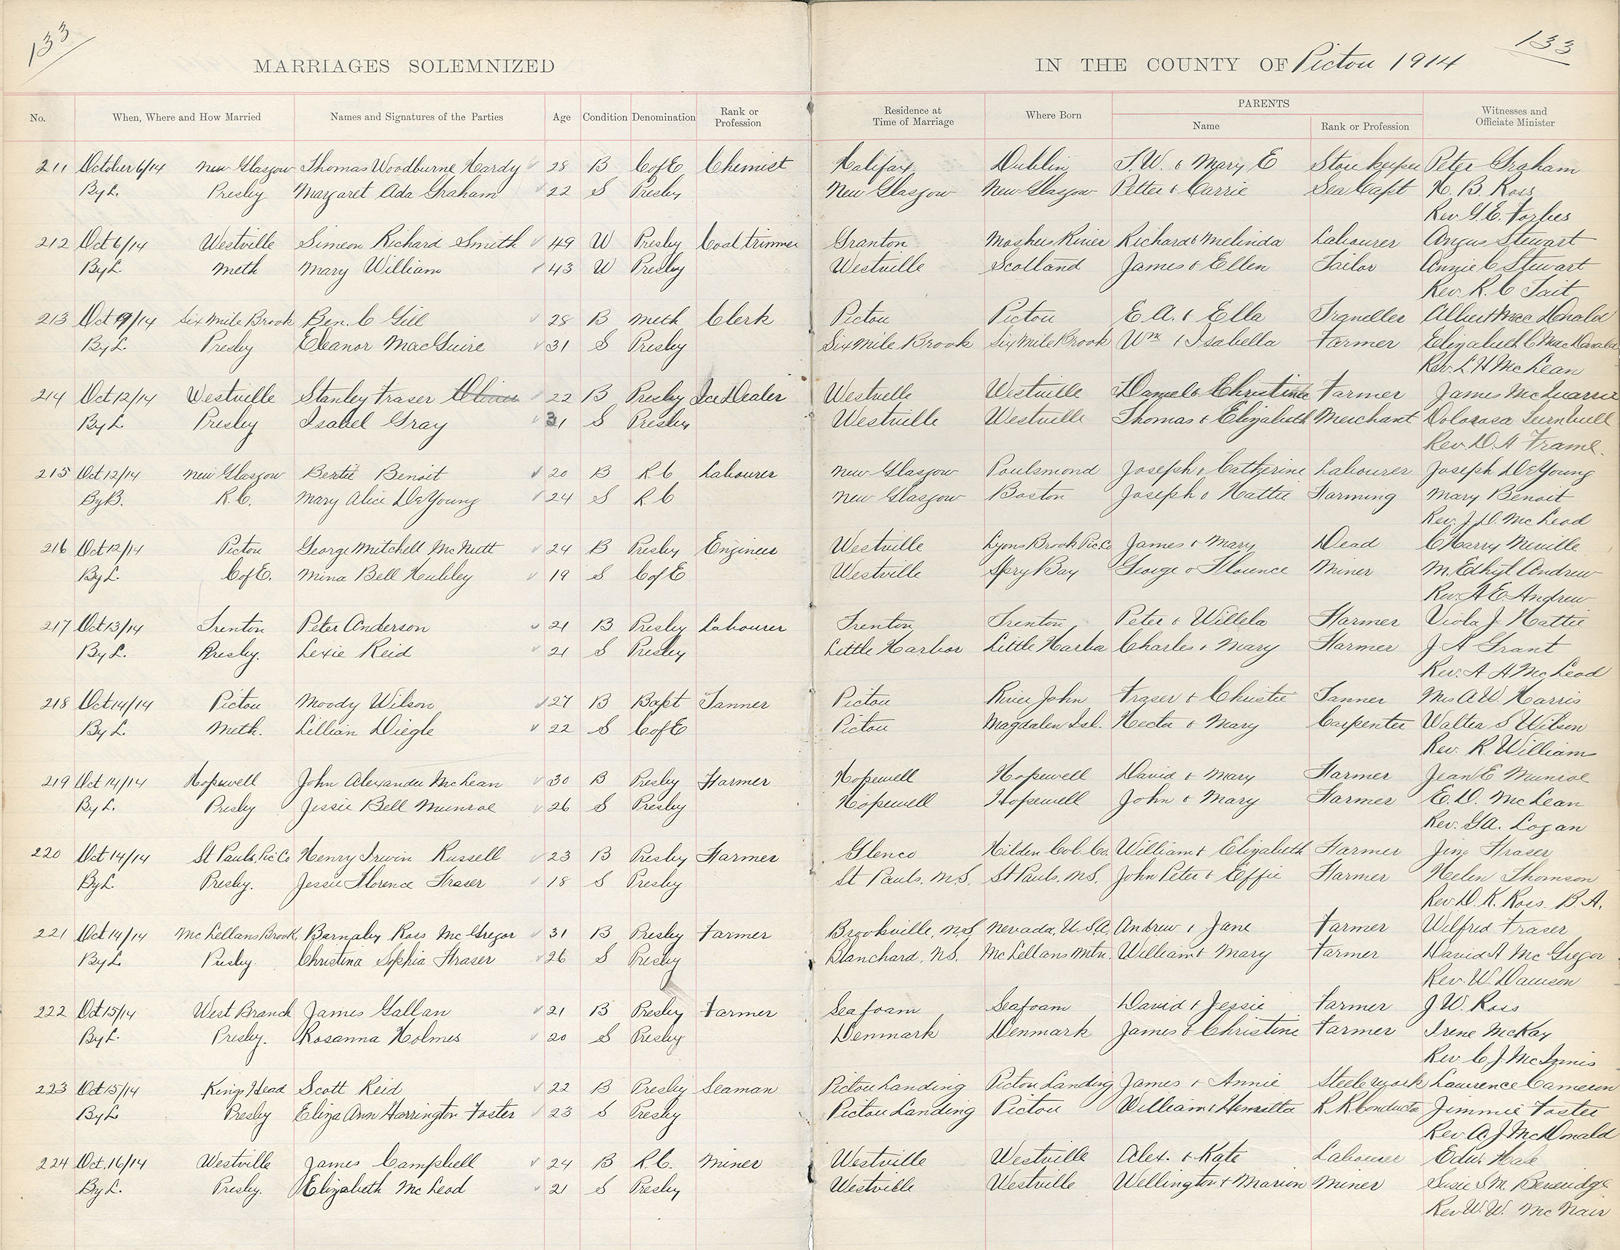 133
133
MARRIAGES SOLEMNIZED IN THE COUNTY OF Pictou 1914
No. When, Where and How Married Names and Signatures of the Parties Age Condition Denomination Rank or Profession Residence at Time of Marriage Where Born PARENTS Name Rank or Profession Witnesses and Officiate Minister
211 October 6/14 New Glasgow Thomas Woodburne Hardy 28 B C of E Chemist Halifax Dublin T.W. & Mary E Storekeeper Peter Graham
By L. Presby Margaret Ada Graham 22 S Presby New Glasgow New Glasgow Peter & Carrie Sea Capt H. B. Ross
Rev G. E. Forbes
212 Oct 6/14 Westville Simeon Richard Smith 49 W Presby Coal trimmer Granton Moshers River Richard & Melinda Labourer Angus Stewart
By L Meth Mary William 43 W Presby Westville Scotland James & Ellen Tailor Annie C Stewart
Rev. R. C Tait
213 Oct 7/14 Six Mile Brook Ben. C Gill 28 B Meth Clerk Pictou Pictou E. A. & Ella Traveller Albert MacDonald
By L. Presby Eleanor MacGuire 31 S Presby Six Mile Brook Six Mile Brook Wm & Isabella Farmer Elizabeth C MacDonald
Rev. L H McLean
214 Oct 12/14 Westville Stanley Fraser 22 B Presby Ice Dealer Westville Westville Daniel & Christine Farmer James McQuarrie
By L Presby Isabel Gray 31 S Presby Westville Westville Thomas & Elizabeth Merchant Dolorosa Turnbull
Rev. D. A Frame.
215 Oct 12/14 New Glasgow Bertie Benoit 20 B R C Labourer New Glasgow Paulsmond Joseph & Catherine Labourer Joseph DeYoung
By B. R.C. Mary Alice DeYoung 24 S R C New Glasgow Boston Joseph & Hattie Farming Mary Benoit
Rev. J. D. McLeod
216 Oct 12/14 Pictou George Mitchell McNutt 24 B Presby Engineer Westville Lyons Brook Pic Co James & Mary Dead C Harry Neville
By L. C of E. Mina Bell Hubley 19 S C of E Westville Spry Bay George & Florence Miner M. Ethyl Andrew
Rev. A E Andrew
217 Oct 13/14 Trenton Peter Anderson 21 B Presby Labourer Trenton Trenton Peter & Willela Farmer Viola J. Hattie
By L. Presby. Lexie Reid 21 S Presby Little Harbor Little Harbor Charles & Mary Farmer J A Grant
Rev. A H McLeod
218 Oct 14/14 Pictou Moody Wilson 27 B Bapt Tanner Pictou River John Fraser & Christie Tanner Mrs A W Harris
By L. Meth. Lillian Diegle 22 S C of E Pictou Magdalen Isl. Hector & Mary Carpenter Walter S Wilson
Rev. R William
219 Oct 14/14 Hopewell John Alexander McLean 30 B Presby Farmer Hopewell Hopewell David & Mary Farmer Jean E Munroe
By L. Presby Jessie Bell Munroe 26 S Presby Hopewell Hopewell John & Mary Farmer E. D. McLean
Rev. G A. Logan
220 Oct 14/14 St Pauls, Pic Co Henry Irwin Russell 23 B Presby Farmer Glenco Hilden Col. Co. William & Elizabeth Farmer Jim Fraser
By L Presby. Jessie Florence Fraser 18 S Presby St Pauls. N.S. St Pauls. N.S. John Peter & Effie Farmer Helen Thomson
Rev. D. K. Ross. B.A.
221 Oct 14/14 McLellans Brook Barnaby Ross McGregor 31 B Presby Farmer Brookville, N.S Nevada, U.S.A. Andrew & Jane Farmer Wilfred Fraser
By L Presby Christina Sophia Fraser 26 S Presby Blanchard, N.S. McLellans Mtn. William & Mary Farmer David A McGregor
Rev. W. Dawson
222 Oct 15/14 West Branch James Gallan 21 B Presby Farmer Seafoam Seafoam David & Jessie Farmer J. W. Ross
By L. Presby. Rosanna Holmes 20 S Presby Denmark Denmark James & Christine Farmer Irene McKay
Rev. C J. McInnis
223 Oct 15/14 Kings Head Scott Reid 22 B Presby Seaman Pictou Landing Pictou Landing James & Annie Steelework Laurence Cameron
By L Presby Eliza Ann Harrington Foster 23 S Presby Pictou Landing Pictou William & Henretta R.R Conducter Jimmie Foster
Rev. A. J. McDonald
224 Oct. 16/14 Westville James Campbell 24 B R.C. Miner Westville Westville Alex. & Kate Labourer Edw. Hale
By L. Presby. Elizabeth McLeod 21 S Presby Westville Westville Wellington & Marion Miner Susie S M. Beveridge
Rev. W. W. McNair